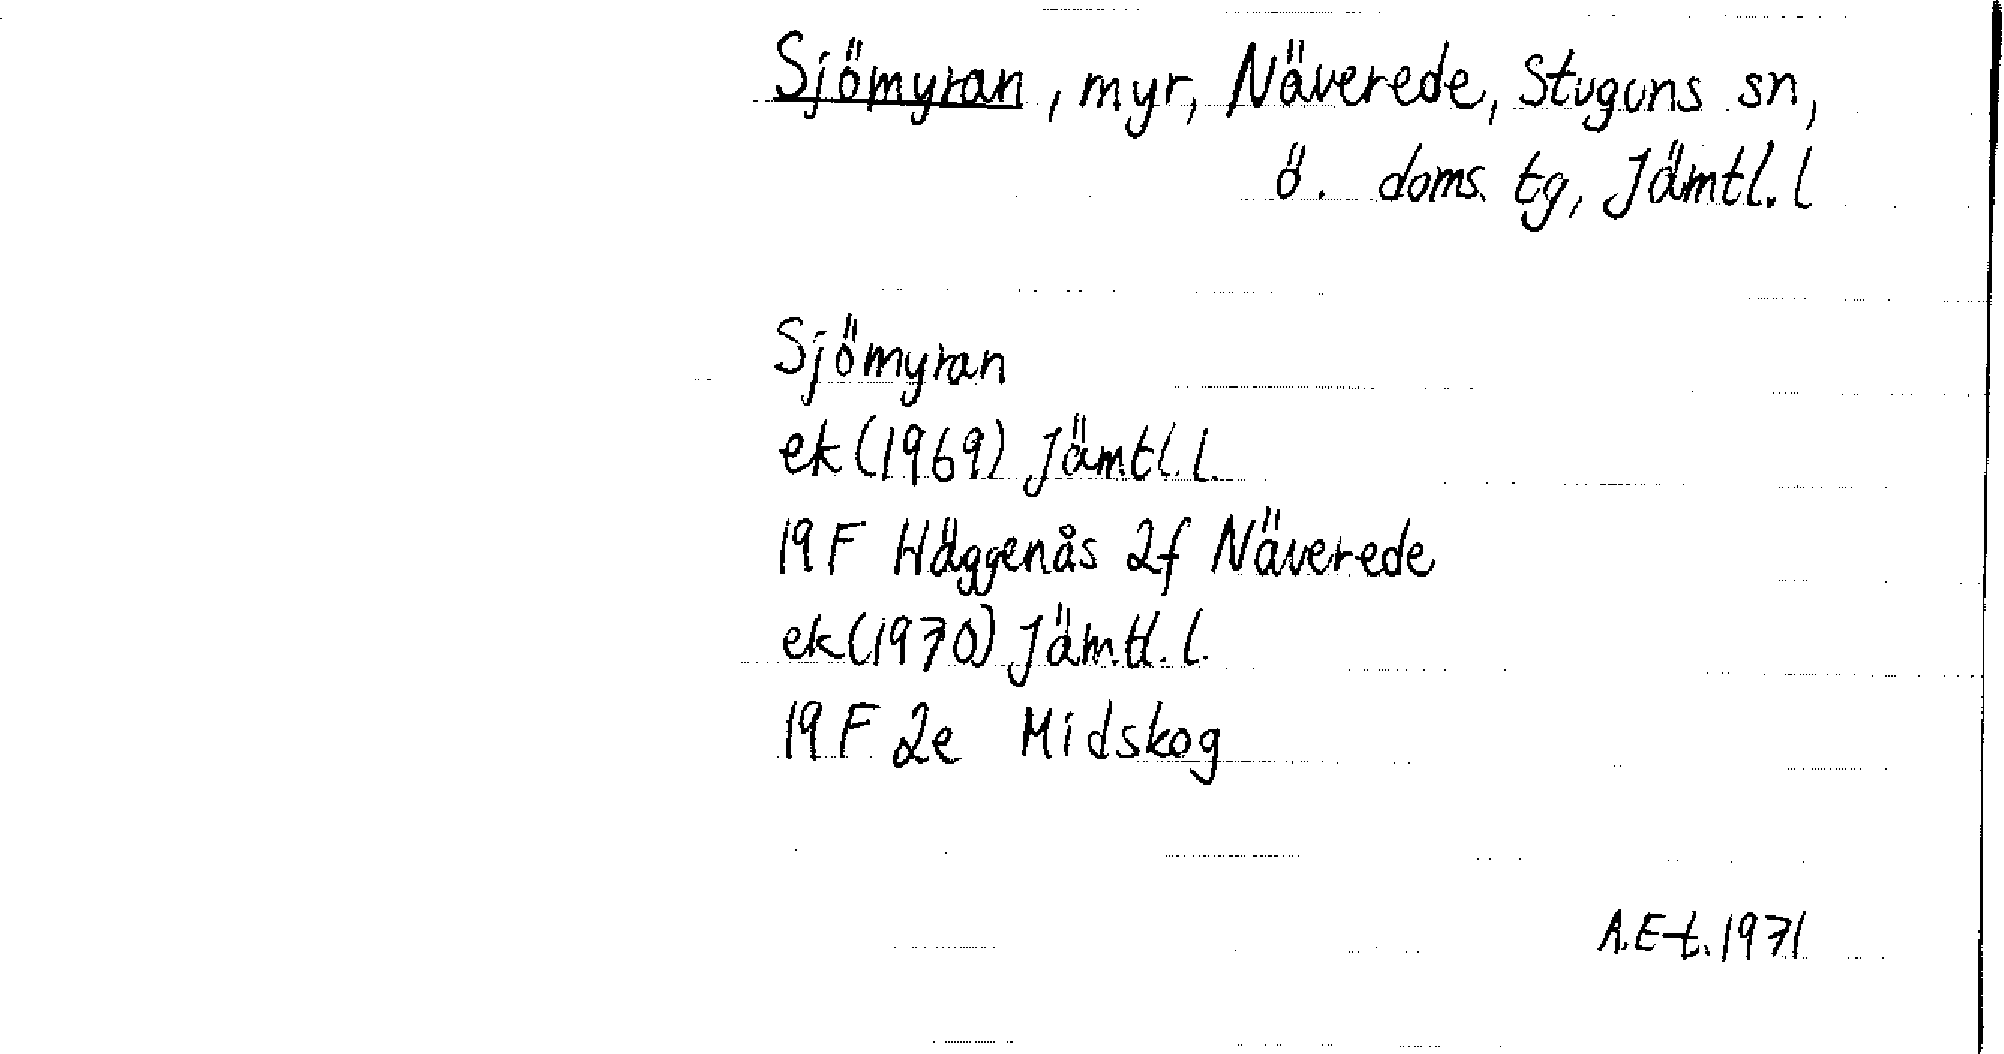 Sjömyran, myr, Näverede, Stuguns sn,
ö. doms. tg, Jämtl. l
Sjömyran
ek (1969) Jämtl. l.
19 F Häggenås 2f Näverede
ek (1970) Jämtl. l.
19 F 2e Midskog
A. E-t. 1971